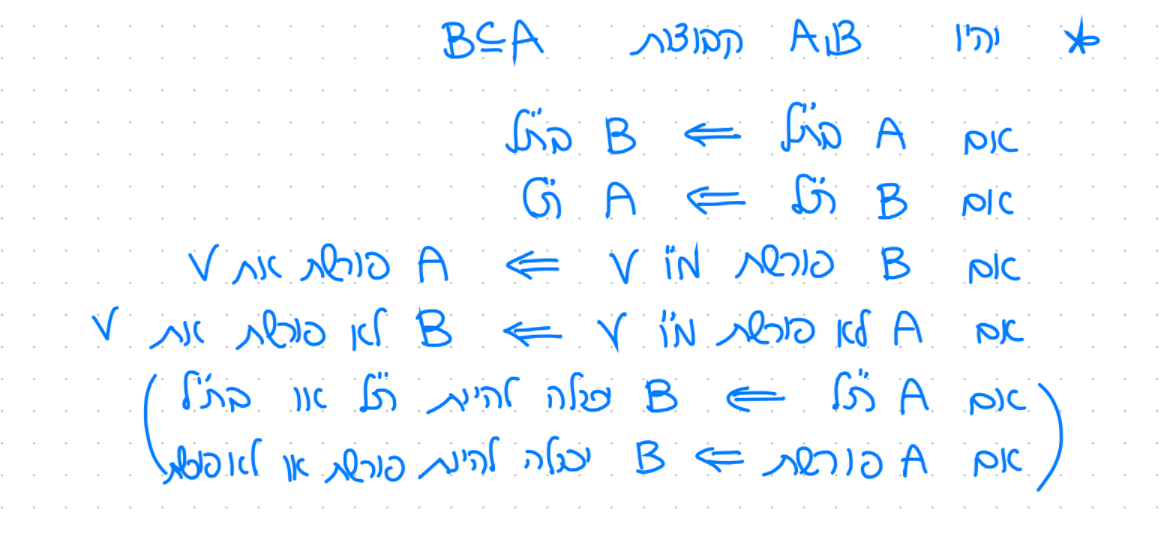 * יהיו A,B קבוצות B⊆A
אם A בת"ל ⇐ B בת"ל
אם B ת"ל ⇐ A ת"ל
אם B פורשת מ"ו V ⇐ A פורשת את V
אם A לא פורשת מ"ו V ⇐ B לא פורשת את V
(אם A ת"ל ⇐ B יכולה להיות ת"ל או בת"ל
אם A פורשת ⇐ B יכולה להיות פורשת או לא פורשת)